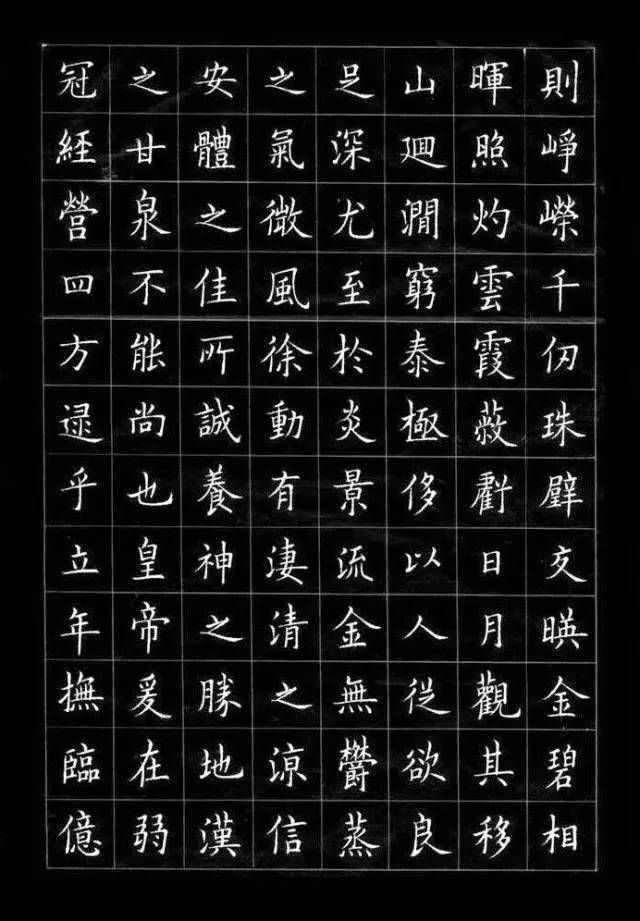 則崢嶸千仞珠壁交暎金碧相
暉照灼雲霞蔽虧日月觀其移
山廻澗窮泰極侈以人從欲良
足深尤至於炎景流金無鬱蒸
之氣微風徐動有淒清之涼信
安體之佳所誠養神之勝地漢
之甘泉不能尚也皇帝爰在弱
冠經營四方逯乎立年撫臨億